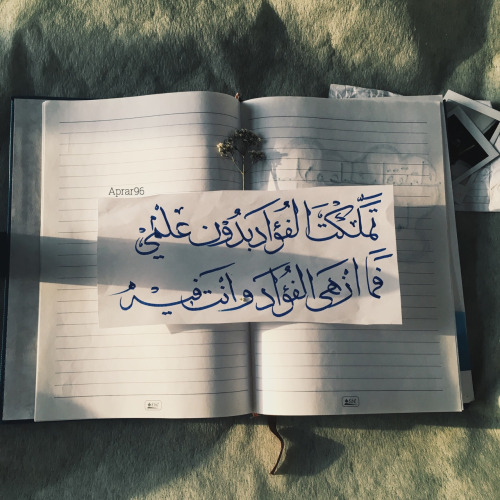 Aprar96
تَمَلَّكتَ الفُؤادَ بَدُوْن عِلْمْيِ
فَمَا ازهَى الفُؤَادَ وانتَ فيِه